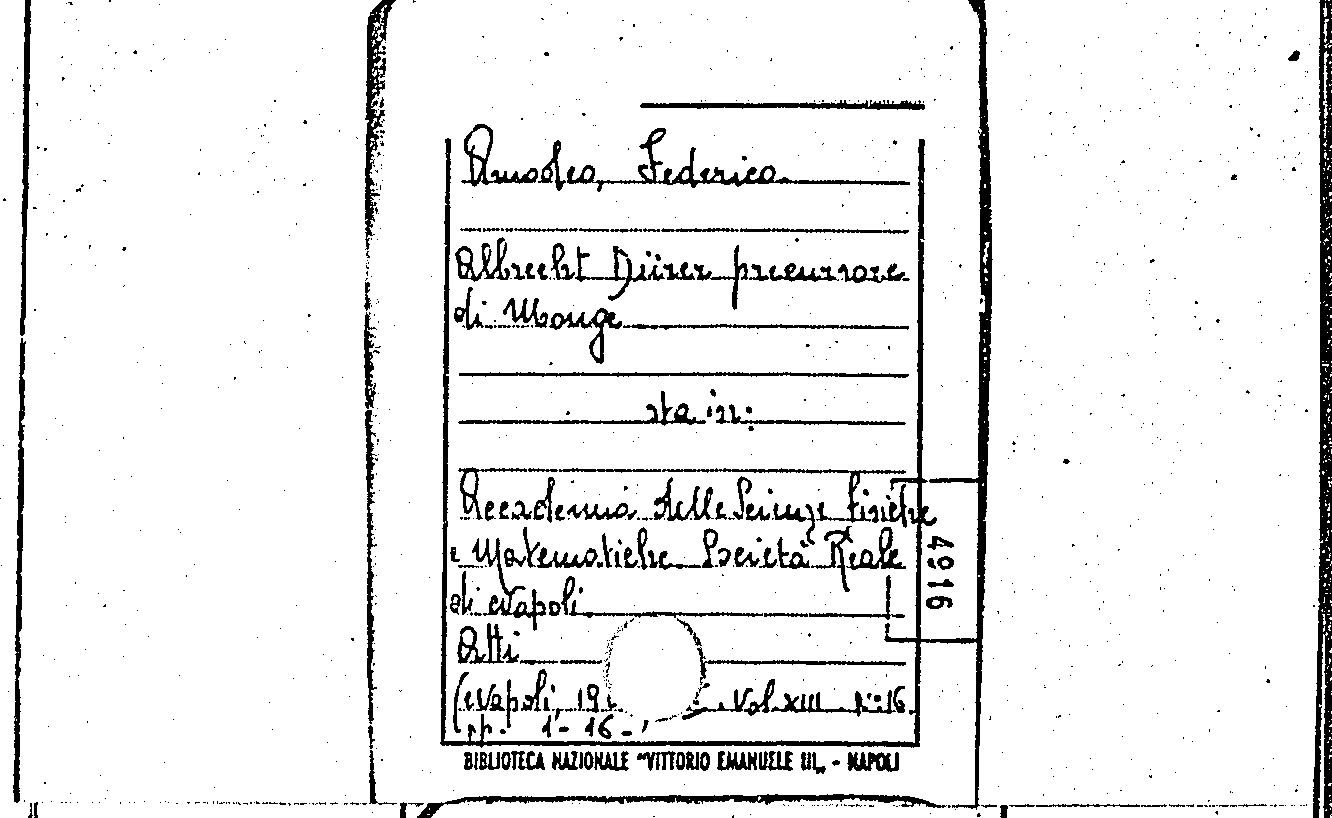 Amodeo, Federico.
Albrecht Dürer precursore
di Monge
sta in:
Accademia delle Scienze Fisiche
e Matematiche Società Reale
di Napoli.
Atti
(Napoli, 19 . Vol. XIII n° 16.
pp. 1 - 16 -
4916
BIBLIOTECA NAZIONALE "VITTORIO EMANUELE III„ - NAPOLI